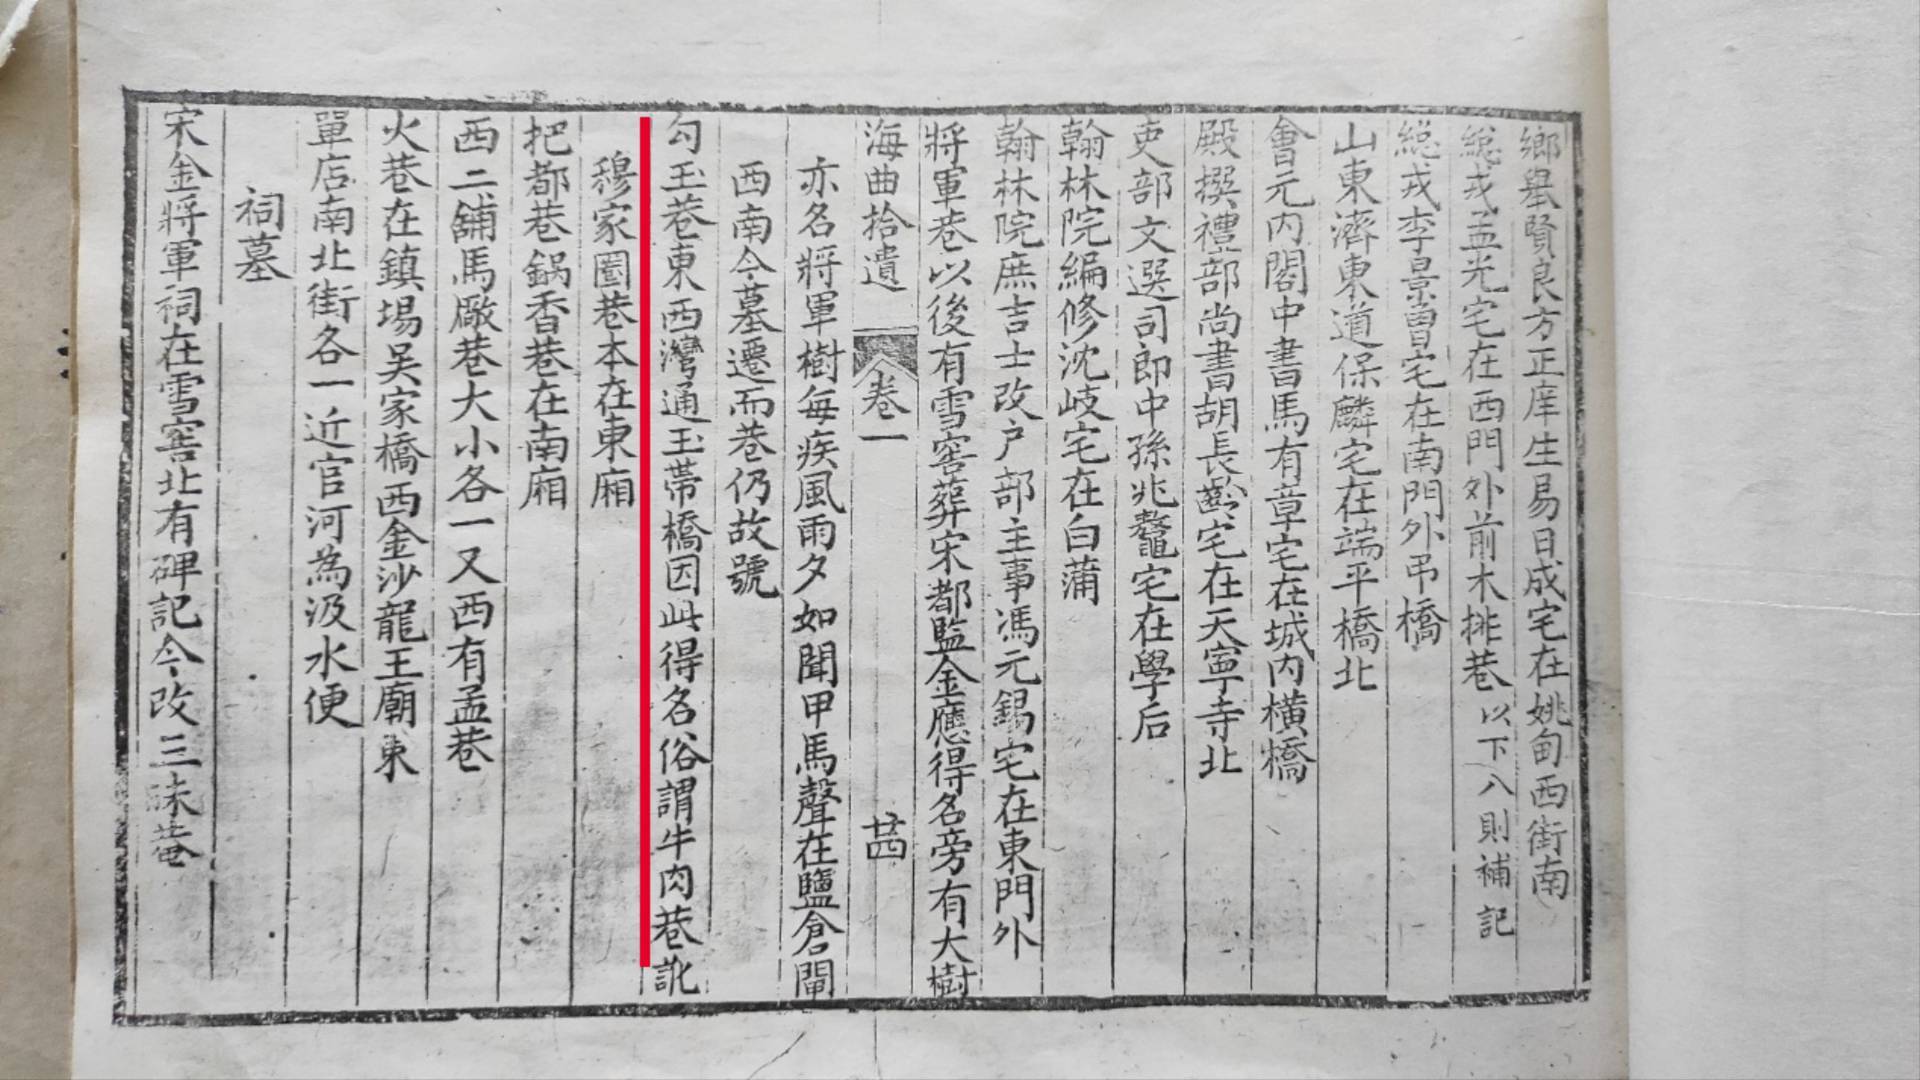 鄉舉賢良方正庠生易日成宅在姚甸西街南
總戎孟光宅在西門外前木排巷以下八則補記
總戎李景曾宅在南門外吊橋
山東濟東道保麟宅在端平橋北
會元內閣中書馬有章宅在城內橫橋
殿撰禮部尚書胡長齡宅在天寧寺北
吏部文選司郎中孫兆鼇宅在學后
翰林院編修沈岐宅在白蒲
翰林院庶吉士改戶部主事馮元錫宅在東門外
將軍巷以後有雪窖葬宋都監金應得名旁有大樹
海曲拾遺 卷一 廿四
亦名將軍樹每疾風雨夕如聞甲馬聲在鹽倉閘
西南今墓遷而巷仍故號
勾玉巷東西灣通玉帶橋因此得名俗謂牛肉巷訛
穆家園巷本在東廂
把都巷鍋香巷在南廂
西二舖馬廠巷大小各一又西有孟巷
火巷在鎮場吳家橋西金沙龍王廟東
單店南北街各一近官河為汲水便
祠墓
宋金將軍祠在雪窖北有碑記今改三昧菴